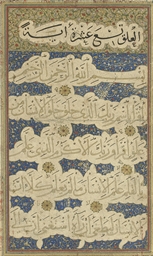 العلق تسع عشرة آية
بسم الله الرحمن الرحيم
اقرأ باسم ربك الذي خلق خلق الانسان من
علق اقرأ وربك الاكرم الذي علم
بالقلم علم الانسان ما لم يعلم كلا ان
الانسان ليطغى ان رآه استغنى ان